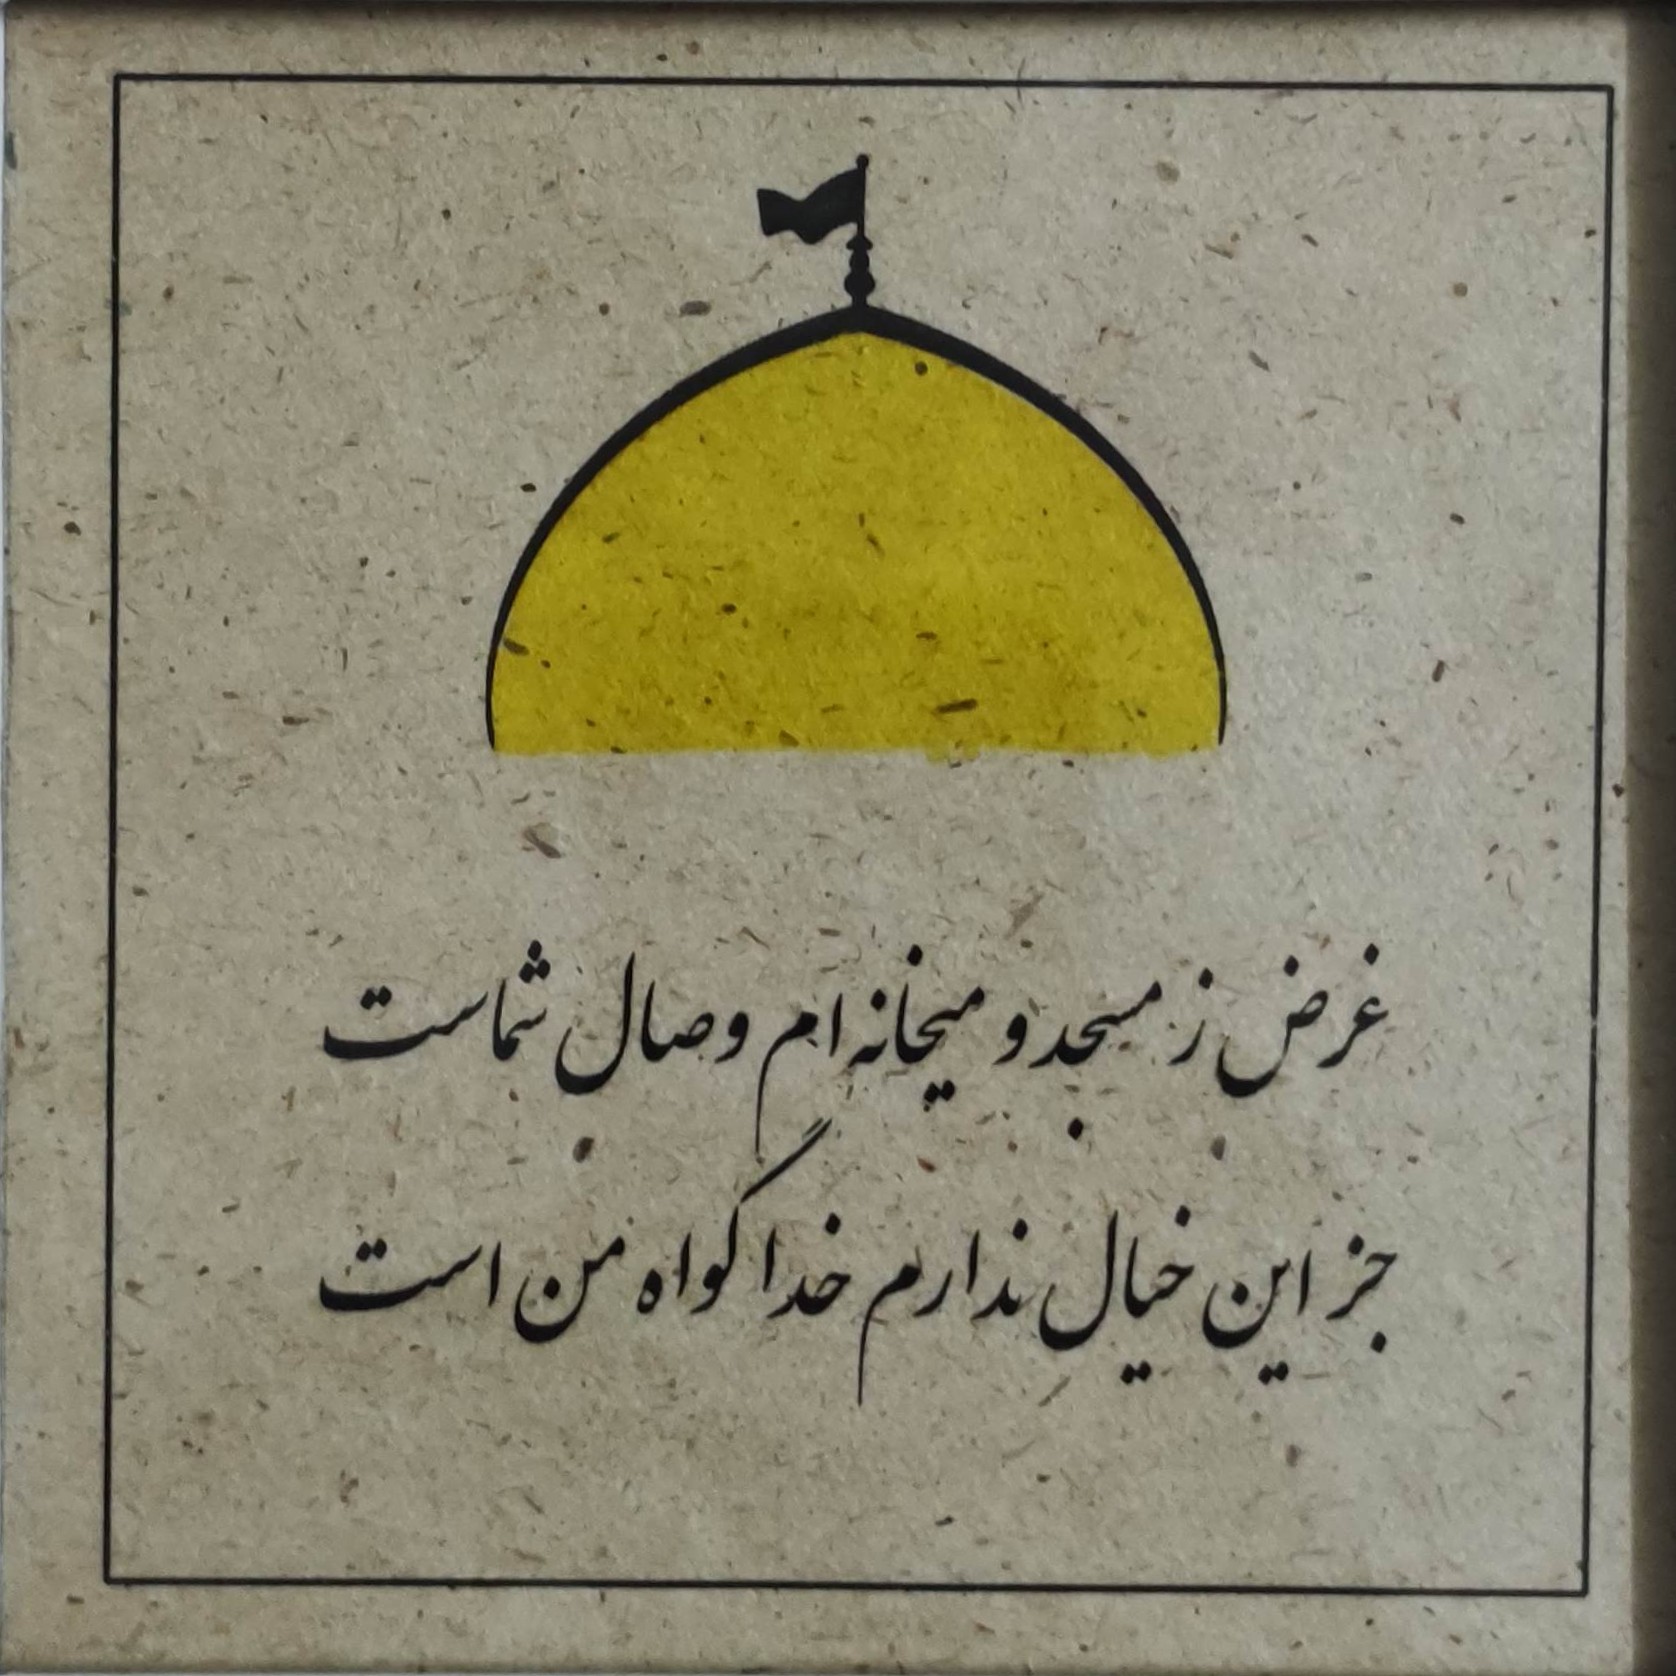 غرض ز مسجد و میخانه ام وصال شماست
جز این خیال ندارم خدا گواه من است